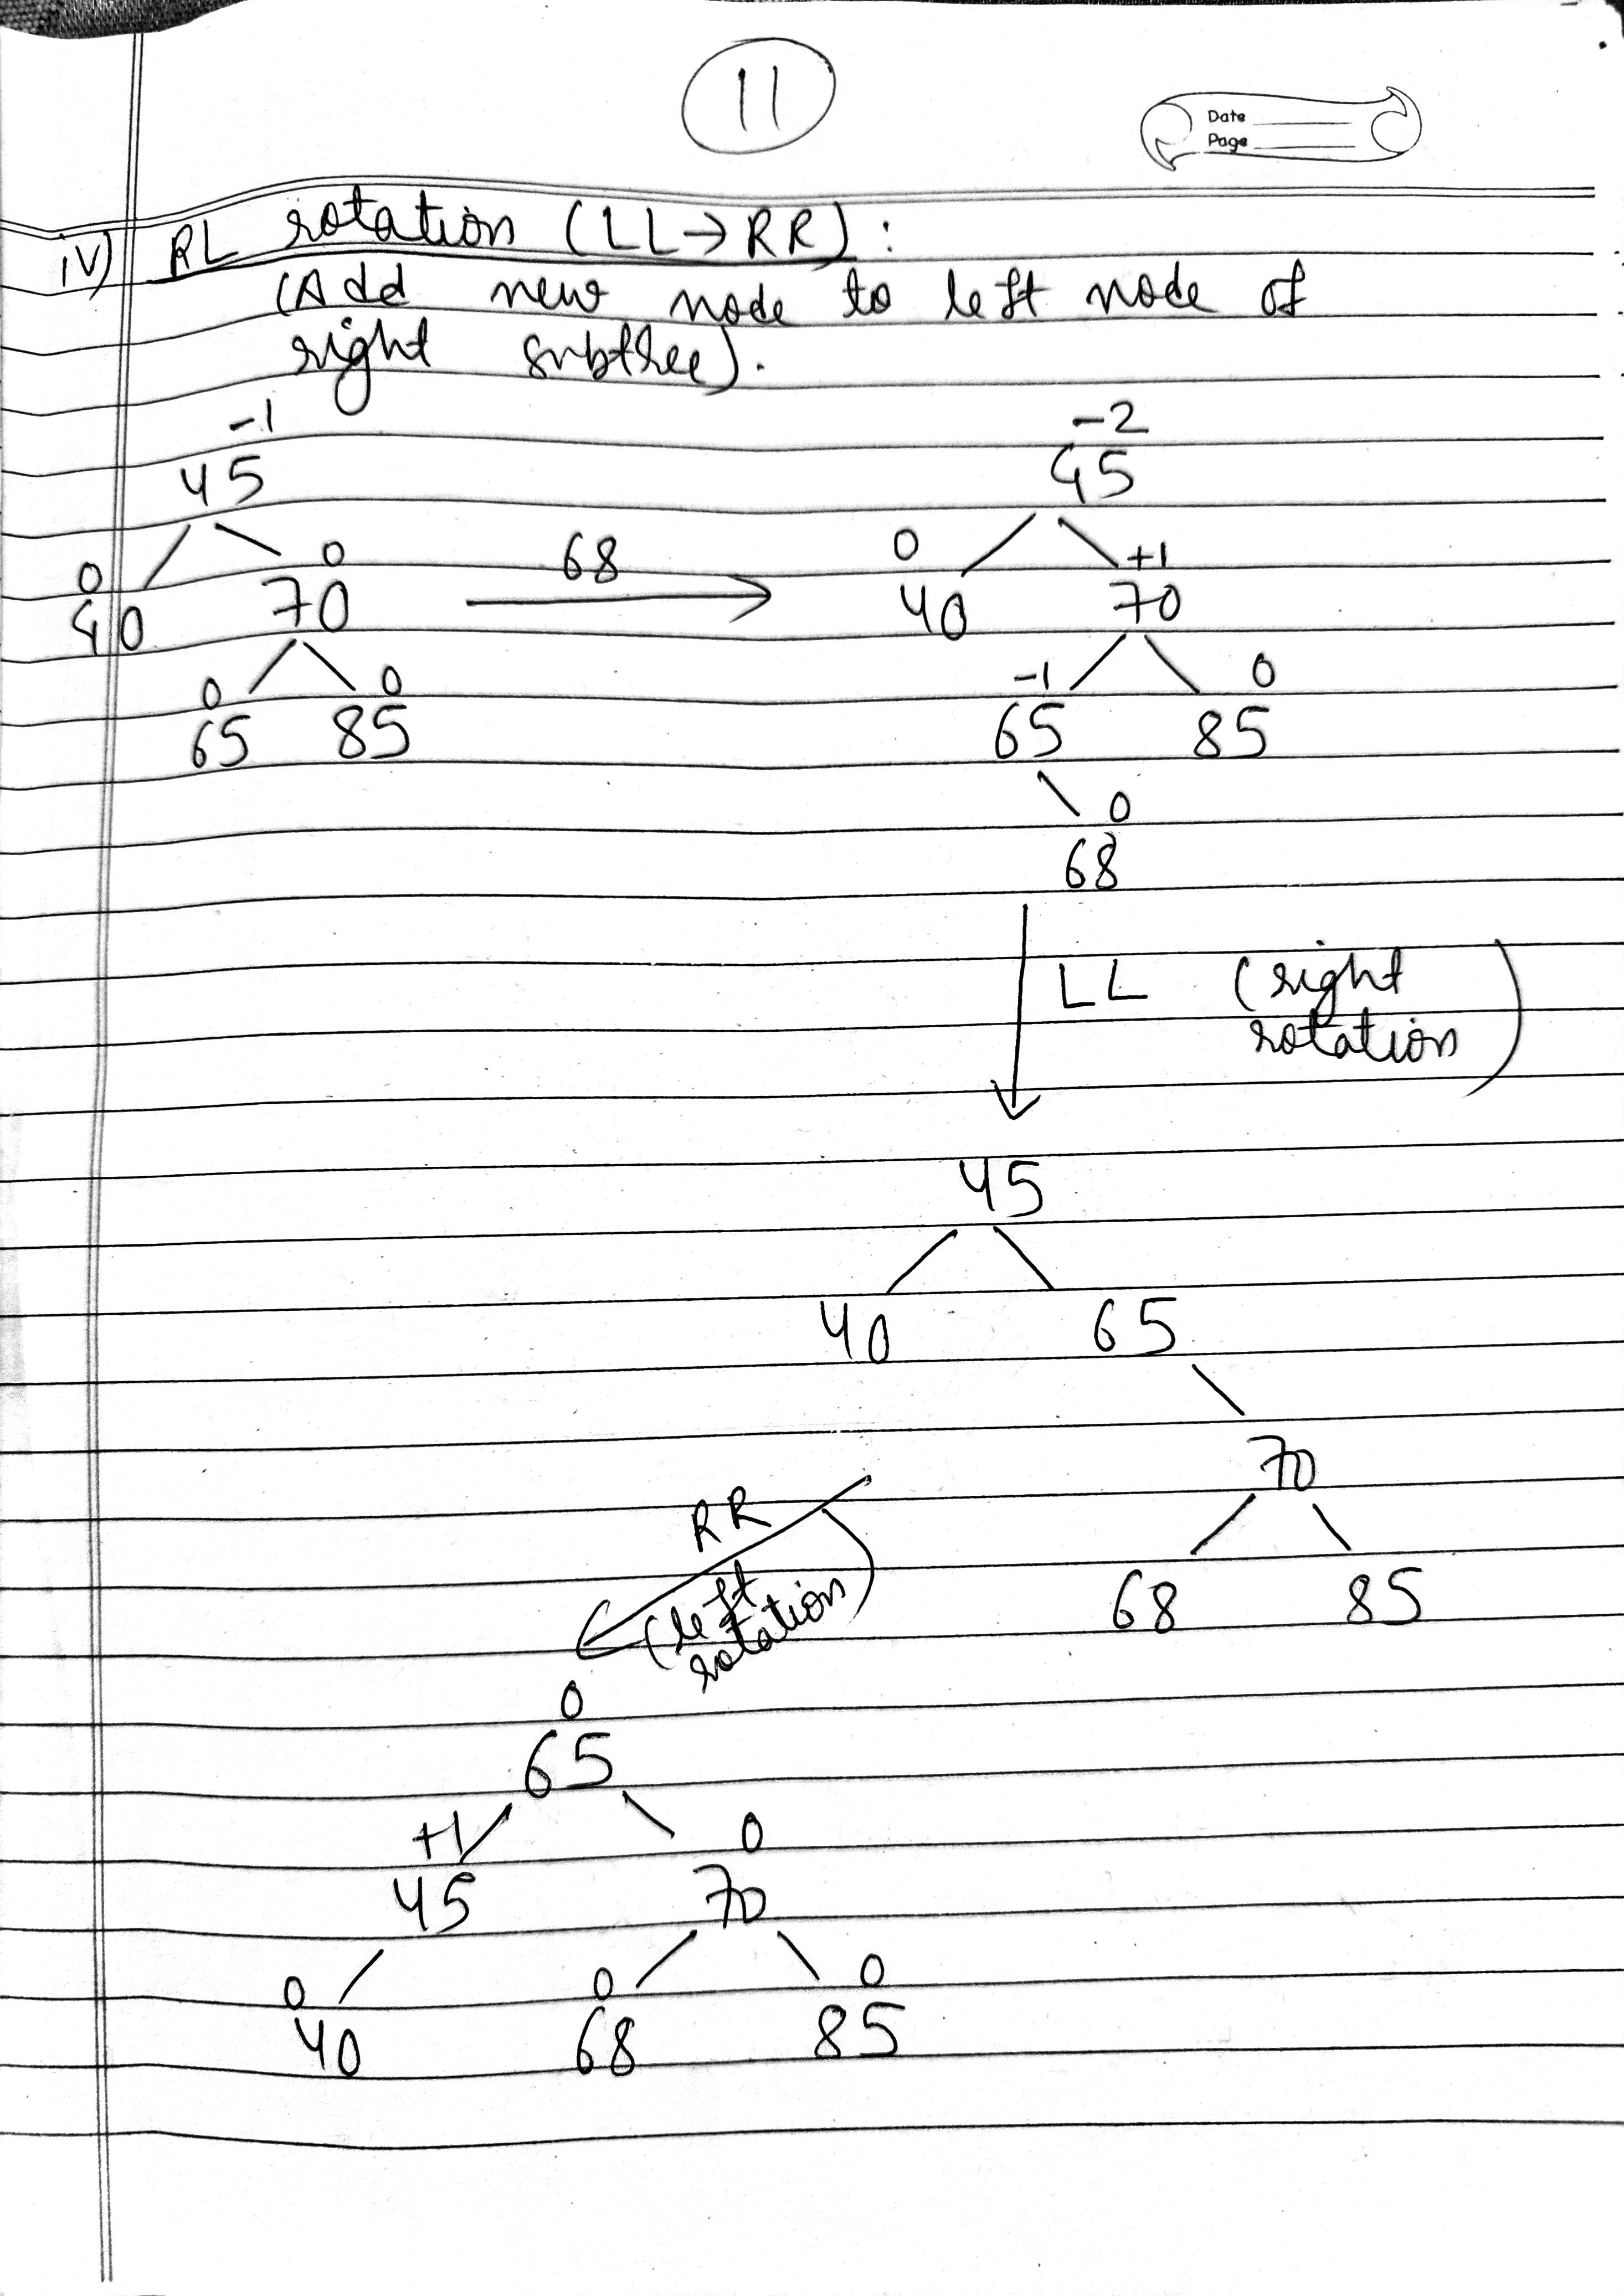 11
Date
Page
iv) RL rotation (LL→RR):
(Add new node to left node of
right subtree).
-1 -2
45 45
0 0 68 0 +1
40 70 40 70
0 0 -1 0
65 85 65 85
0
68
LL (right
rotation)
45
40 65
70
68 85
RR
(left
rotation)
0
65
+1 0
45 70
0 0 0
40 68 85